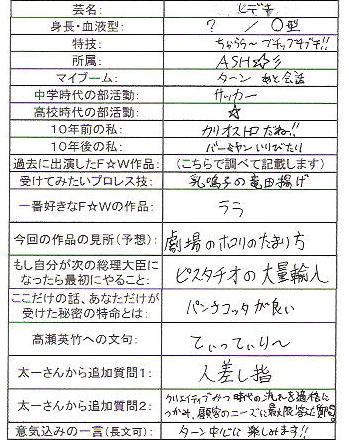 芸名: ヒデキ
身長・血液型: ? / O型
特技: ちゅらら〜
所属: ASH☆彡
マイブーム: ターン あと会話
中学時代の部活動: サッカー
高校時代の部活動: ☆
10年前の私: カリオストロだねー!!
10年後の私: バーミヤンいりびたり
過去に出演したF☆W作品: (こちらで調べて記載します)
受けてみたいプロレス技: 乳鳴子の竜田揚げ
一番好きなF☆Wの作品: ララ
今回の作品の見所(予想): 劇場のホコリのたまり方
もし自分が次の総理大臣に
なったら最初にやること: ピスタチオの大量輸入
ここだけの話、あなただけが
受けた秘密の特命とは: パンナコッタが良い
高瀬英竹への文句: てぃってぃり〜
太一さんから追加質問1: 人差し指
太一さんから追加質問2: クリエイティブかつ時代の流れを適格に
つかみ、顧客のニーズに最大限答える
意気込みの一言(長文可): ターン中心に楽しめます!!